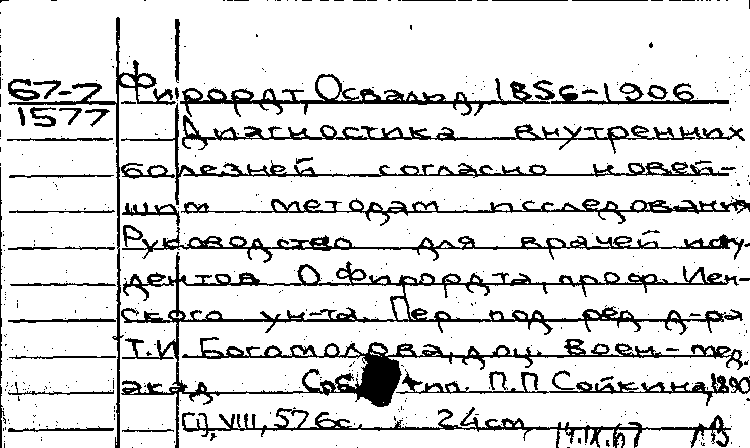 67-7 Фирордт, Освальд, 1856-1906
1577 Диагностика внутренних
болезней согласно новей-
шим методам исследования
Руководство для врачей и сту-
дентов О. Фирордта, проф. Иен-
ского ун-та. Пер. под ред. д-ра
Т.И. Богомолова, доц. Воен-мед.
акад. Спб, тип. П.П. Сойкина, 1890
[1], VIII, 576с. 24см
14.IX.67